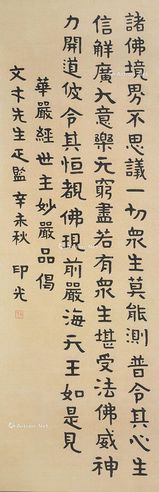 諸佛境界不思議一切衆生莫能測普令其心生
信解廣大意樂无窮盡若有衆生堪受法佛威神
力開道彼令其恒覩佛現前嚴海天王如是見
華嚴經世主妙嚴品偈
文木先生正鑑 辛未秋 印光